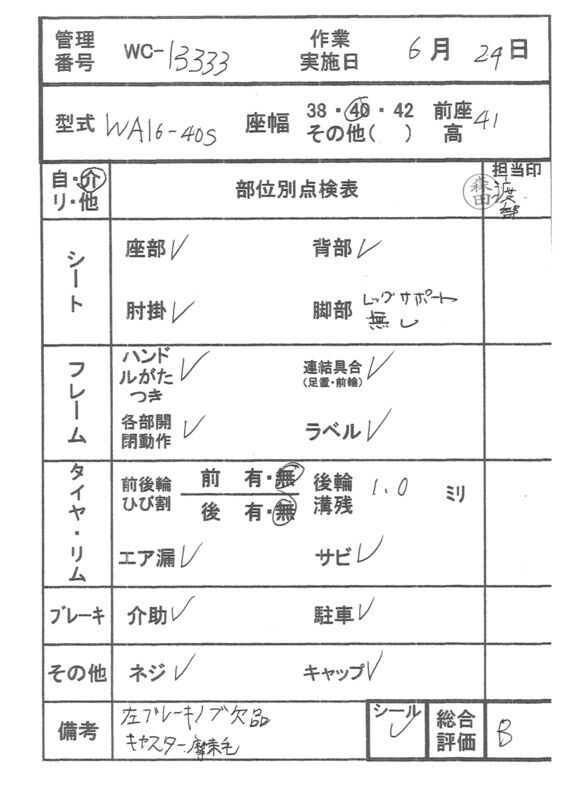 管理番号 WC-13333 作業実施日 6月29日
型式 WA16-40S 座幅 38・40・42 その他( ) 前座高 41
自・介 リ・他 部位別点検表 担当印 森田 渡部
シート 座部 ✓ 背部 ✓
肘掛 ✓ 脚部 レッグサポート無し
フレーム ハンドルがたつき ✓ 連結具合(足置・前輪) ✓
各部開閉動作 ✓ ラベル ✓
タイヤ・リム 前後輪ひび割 前 有・無 後 有・無 後輪溝残 1.0 ミリ
エア漏 ✓ サビ ✓
ブレーキ 介助 ✓ 駐車 ✓
その他 ネジ ✓ キャップ ✓
備考 左ブレーキノブ欠品
キャスター摩耗 シール ✓ 総合評価 B